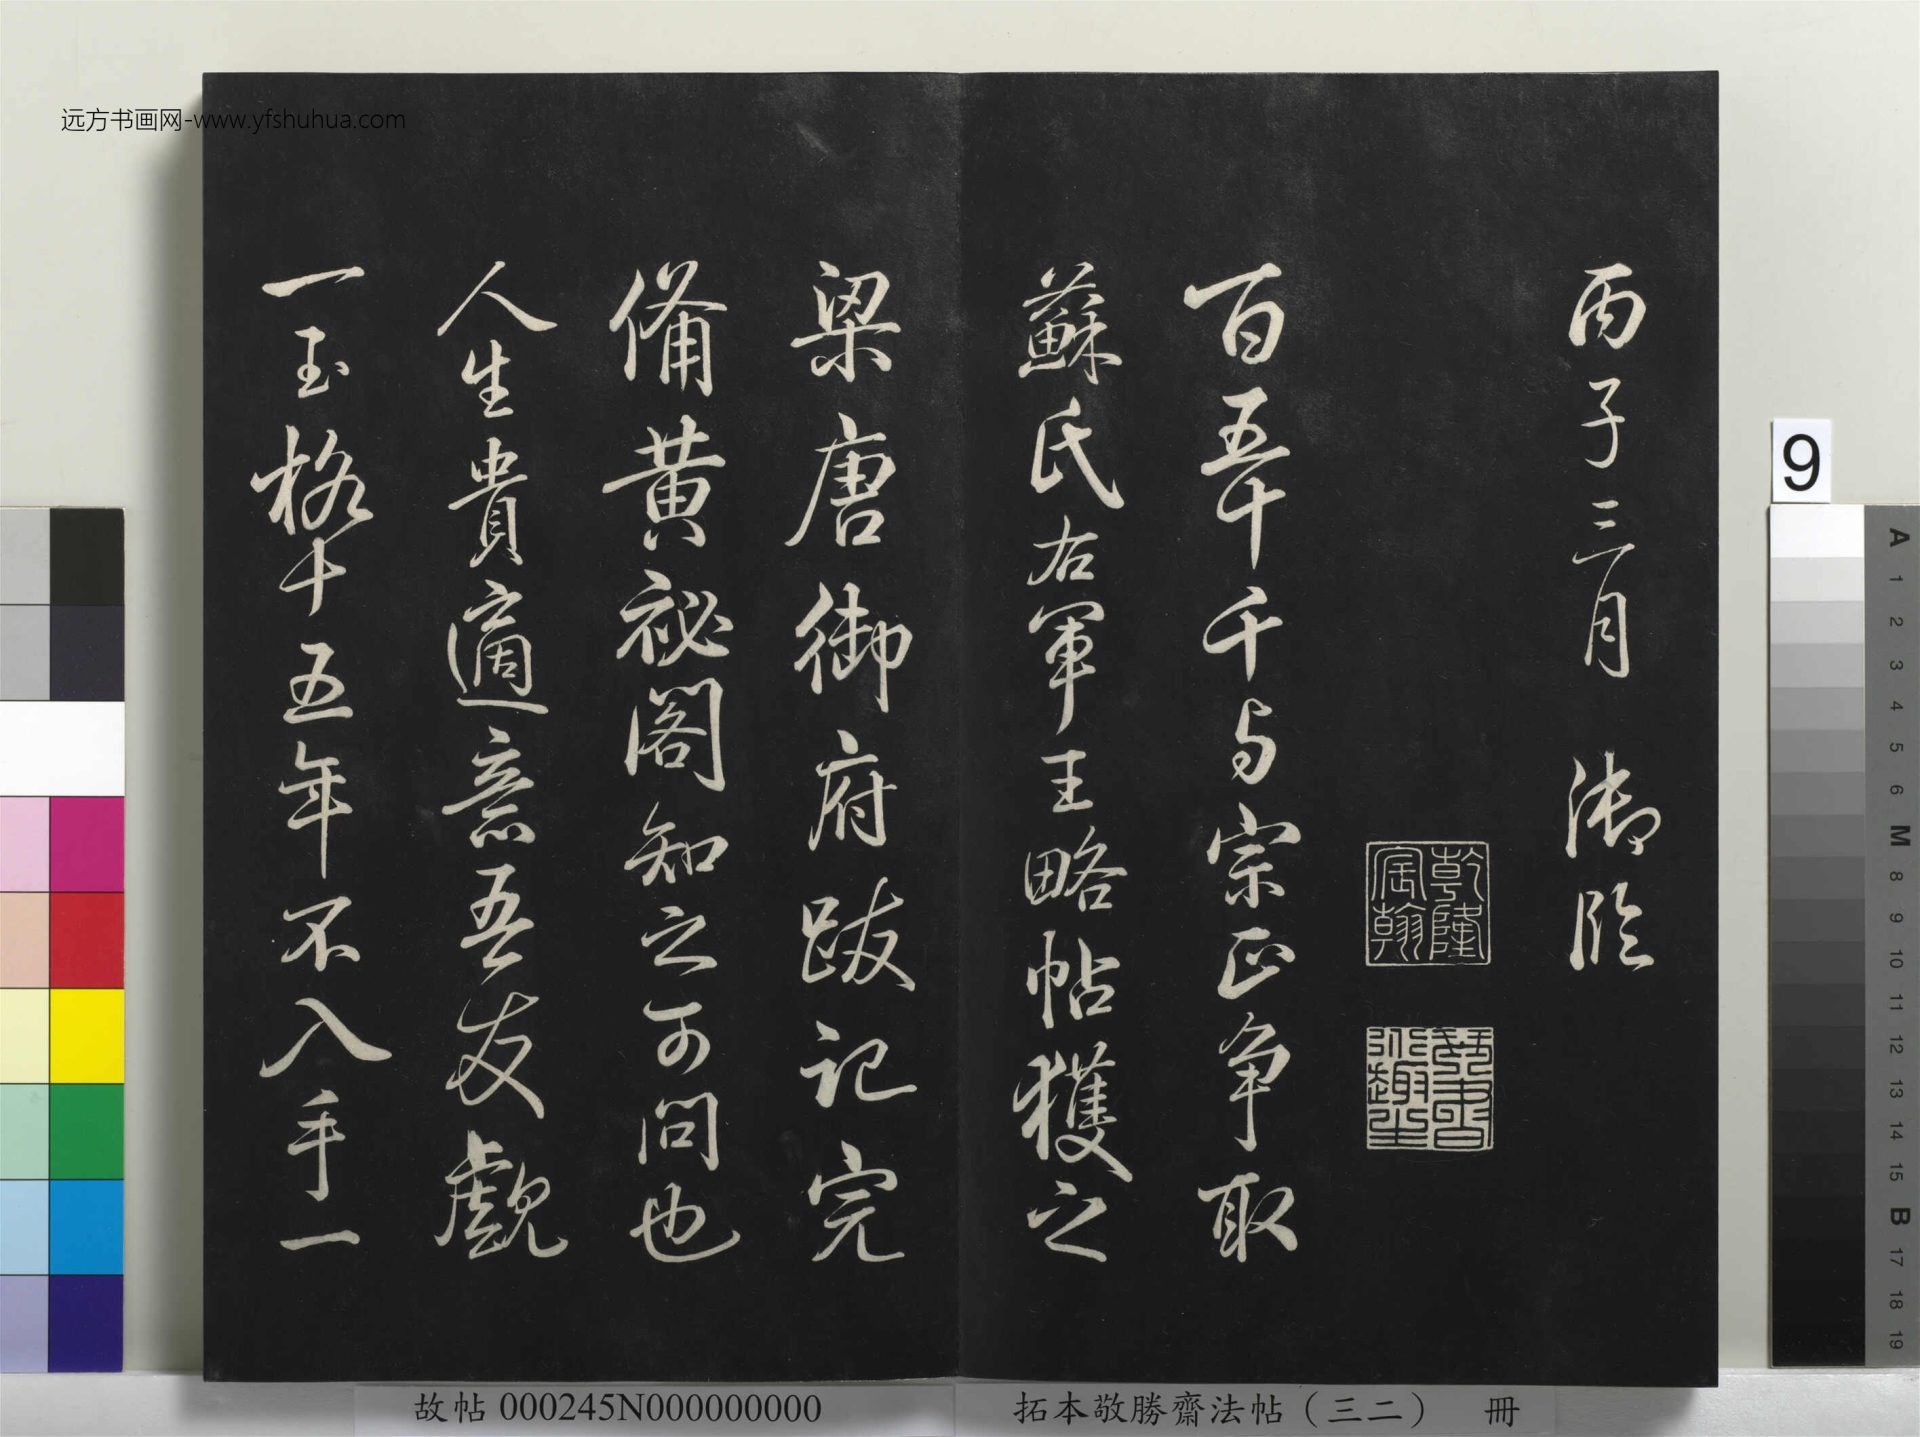 远方书画网-www.yfshuhua.com
丙子三月 御臨
乾隆
宸翰
琴書
道趣生
百五十千与宗正争取
蘇氏右軍王略帖獲之
梁唐御府跋記完
備黄祕閣知之可問也
人生貴適意吾友覷
一玉格十五年不入手一
9
A
1
2
3
4
5
6
M
8
9
10
11
12
13
14
15
B
17
18
19
故帖 000245N000000000
拓本敬勝齋法帖（三二） 冊